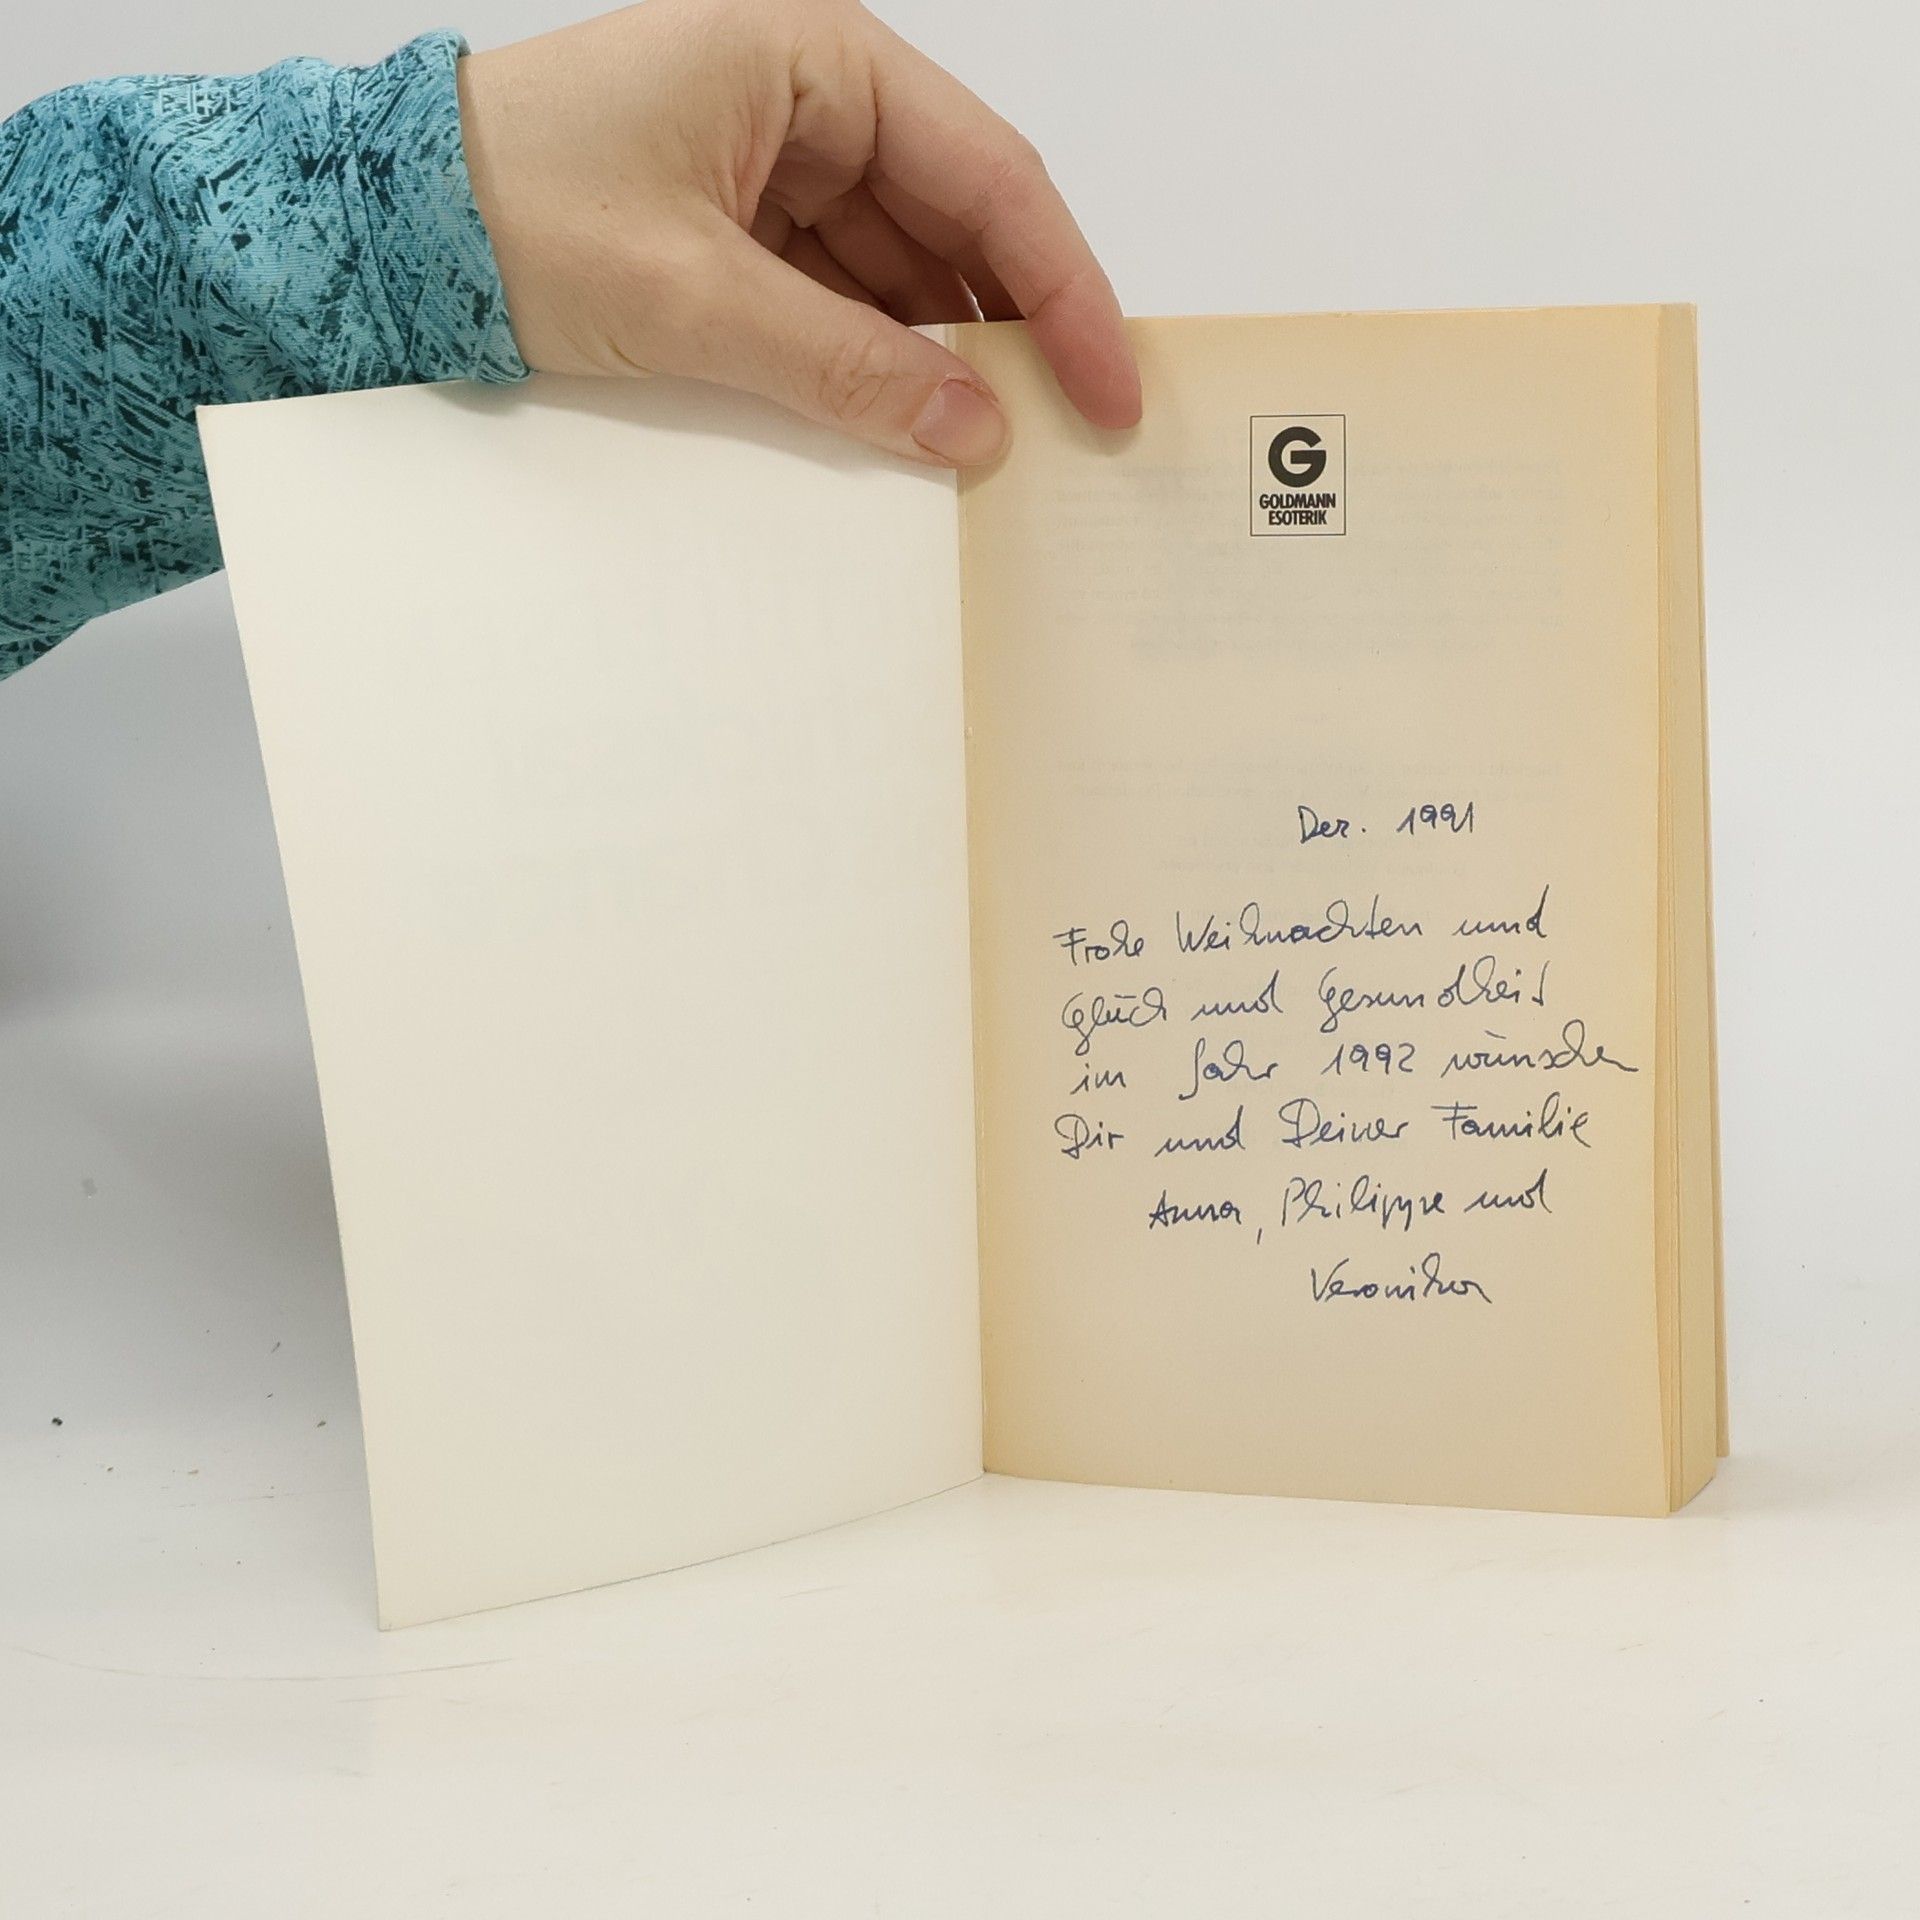 G
GOLDMANN
ESOTERIK
Dez. 1991
Frohe Weihnachten und
Glück und Gesundheit
im Jahr 1992 wünschen
Dir und Deiner Familie
Anna, Philippe und
Veronika